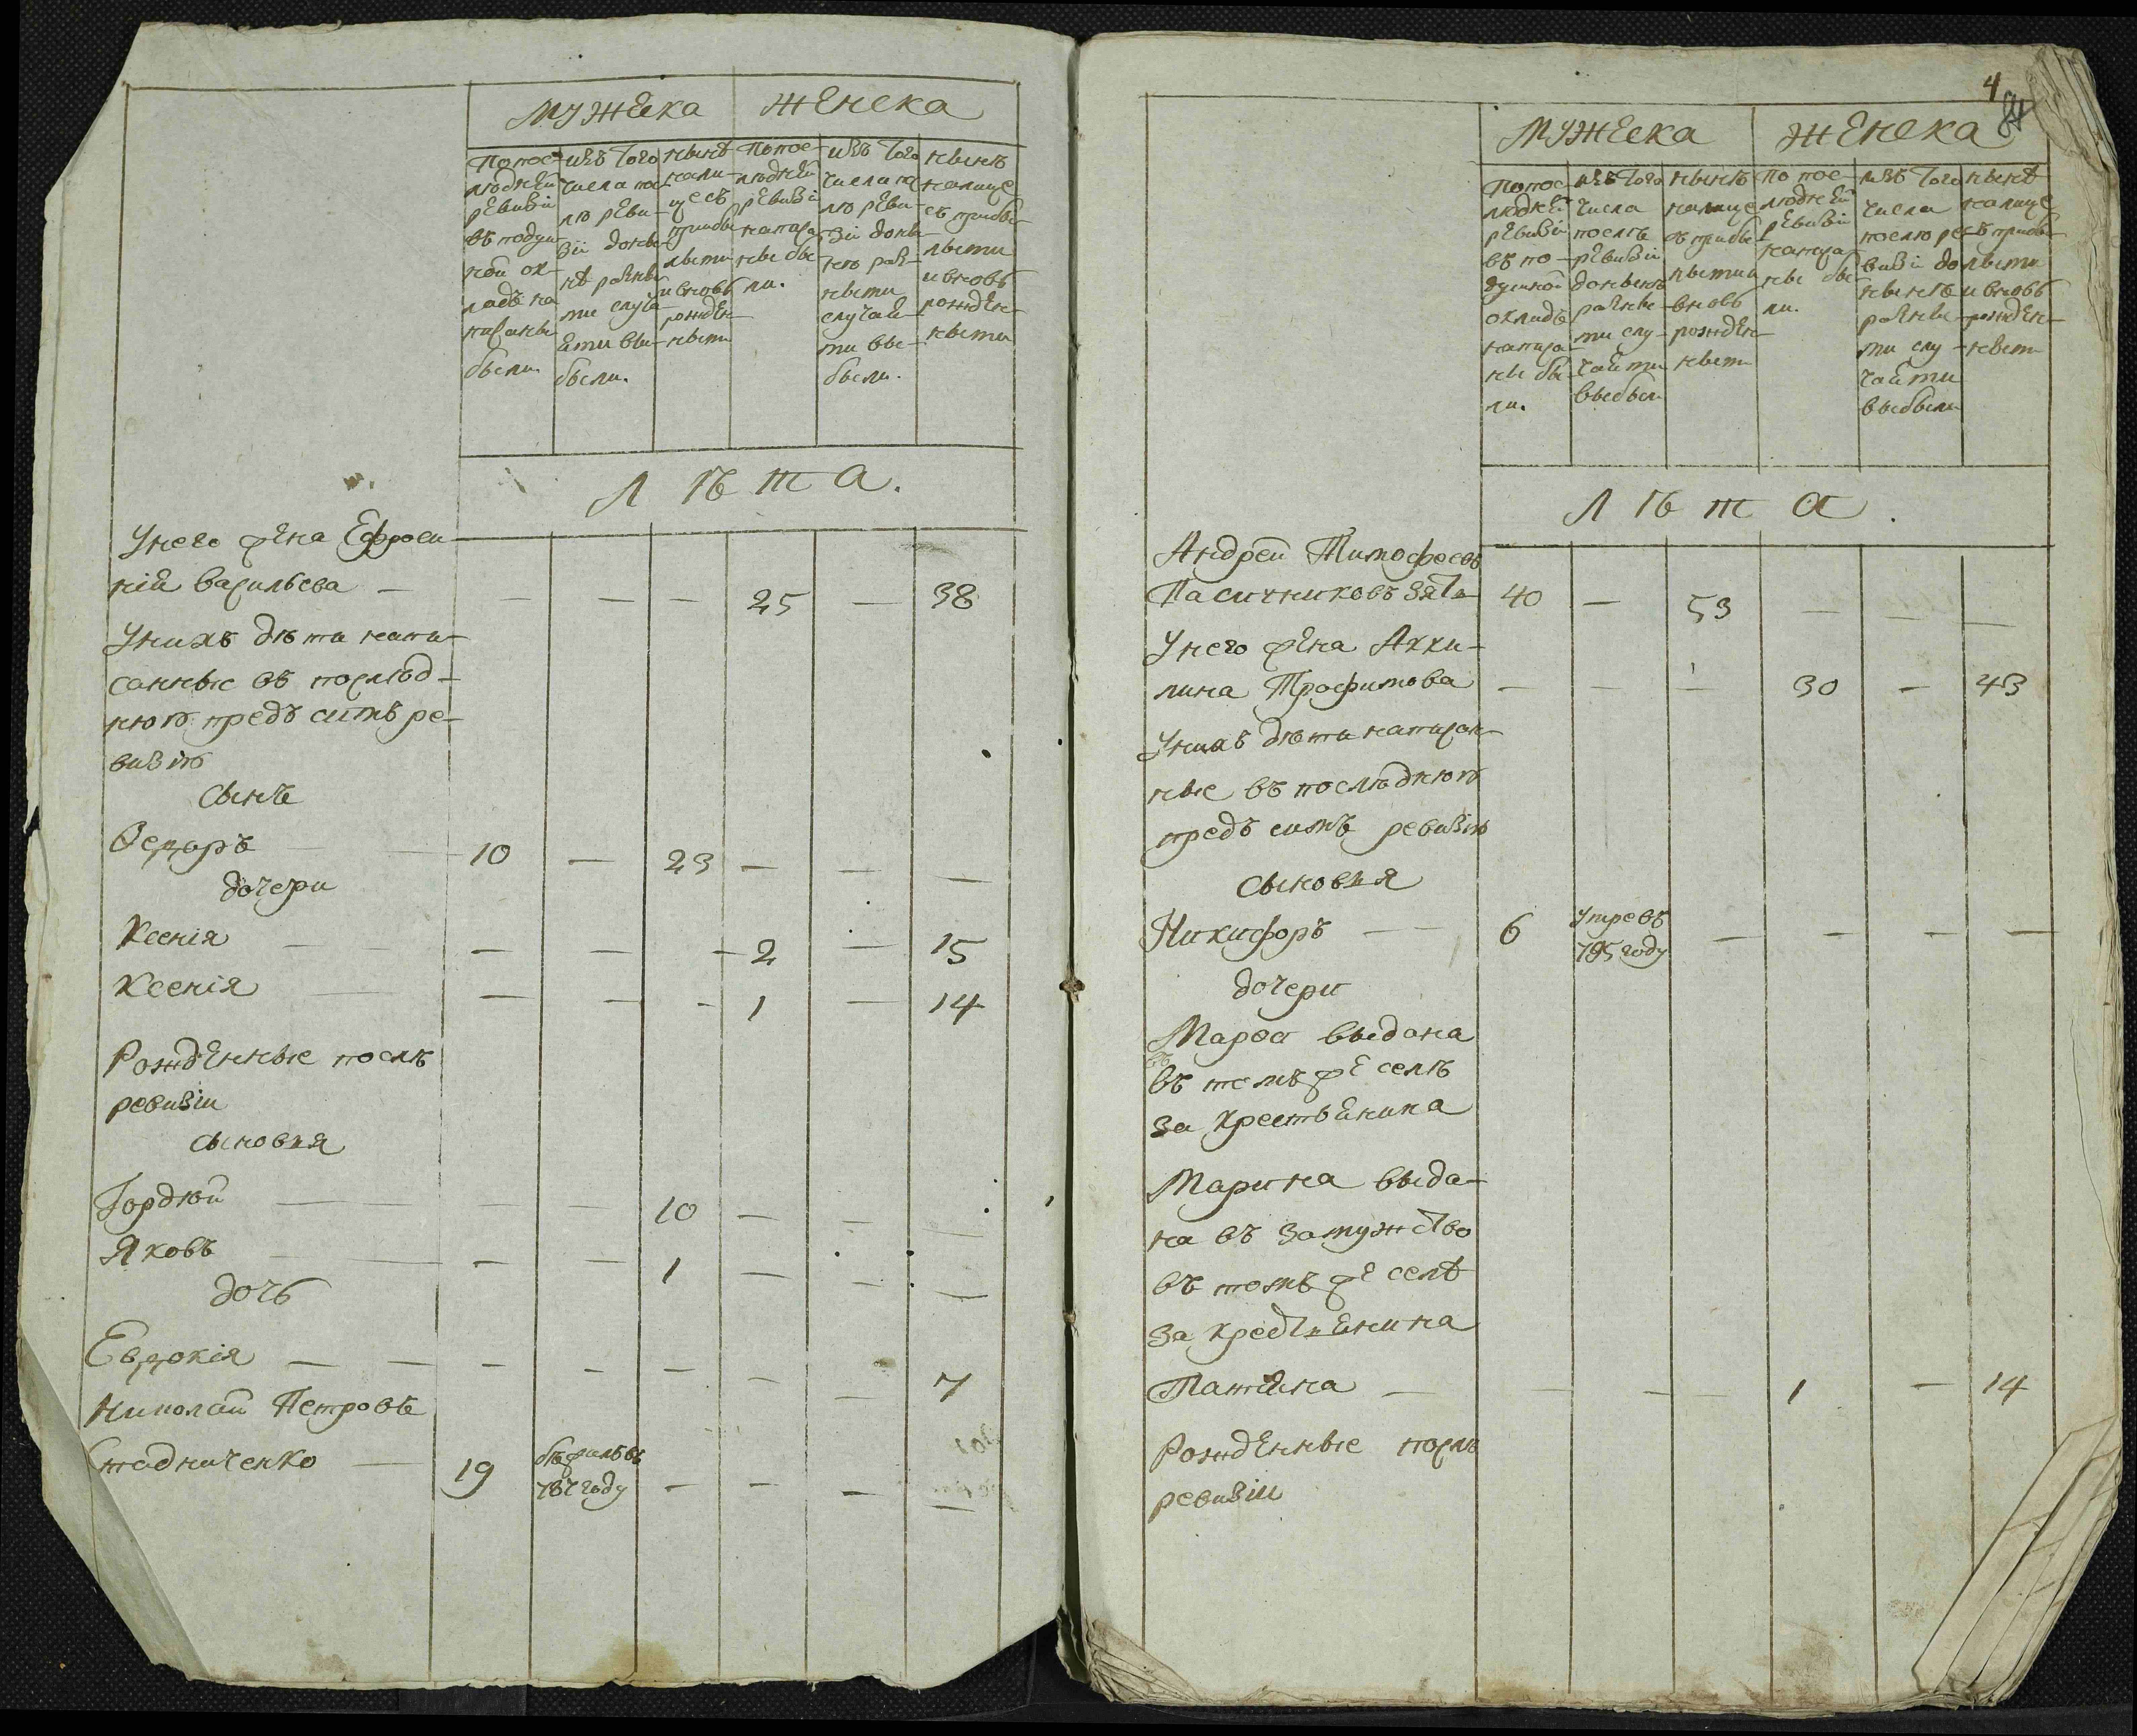 мужеска женска
По пос-
людней
ревизіи
въ подуш-
ной ок-
ладъ на
писаны
были.
изъ того
числа по-
лю реви-
зіи доны-
нѣ разны
ми случа
ями вы-
были.
нынѣ
нали-
цо съ
прибы
лыми
и вновь
рожден-
ными
По пос-
людней
ревизіи
написа
ны бы
ли.
изъ того
числа по
лю реви-
зіи доны
нѣ раз-
ными
случая-
ми вы-
были.
нынѣ
налицо
съ прибы
лыми
и вновь
рожден-
ными
Лѣта.
У него жена Ефроси-
нія васильева — — — — 25 — 38
У нихъ дѣти напи-
санные въ послѣд-
нюю предъ симъ ре-
визію
сынъ
Ѳедоръ — 10 — 23 — — —
дочери
Ксенія — — — — 2 — 15
Ксенія — — — — 1 — 14
Рожденные послѣ
ревизіи
сыновья
Гордѣй — — — 10 — — —
Яковъ — — — 1 — — —
дочь
Евдокія — — — — — — — 7
Николай Петровъ
Стадниченко — 19 бѣжилъ въ
787 году — — — —
4
мужеска женска
По пос-
людней
ревизіи
въ по-
душной
окладъ
написа-
ны бы-
ли.
изъ того
числа
послѣ
ревизіи
донынѣ
разны-
ми слу-
чаями
выбыли
нынѣ
налицо
съ прибы
лыми и
вновь
рожден-
ными
По пос-
людней
ревизіи
написа
ны бы-
ли.
изъ того
числа
послю ре-
визіи до
нынѣ
разны-
ми слу-
чаями
выбыли
нынѣ
налицо
съ прибы
лыми
и вновь
рожден-
ными
Лѣта.
Андрей Тимофеевъ
Пасичниковъ зять 40 — 53 — — —
У него жена Акки-
лина Трофимова — — — 30 — 43
У нихъ дѣти написан-
ные въ послѣднюю
предъ симъ ревизію
сыновья
Никифоръ — 6 умре въ
795 году — — — —
дочери
Марѳа выдана
въ томъ же селѣ
за крестьянина
Марина выда-
на въ замужство
въ томъ же селѣ
за крестьянина
Татьяна — — — — 1 — 14
Рожденные послѣ
ревизіи